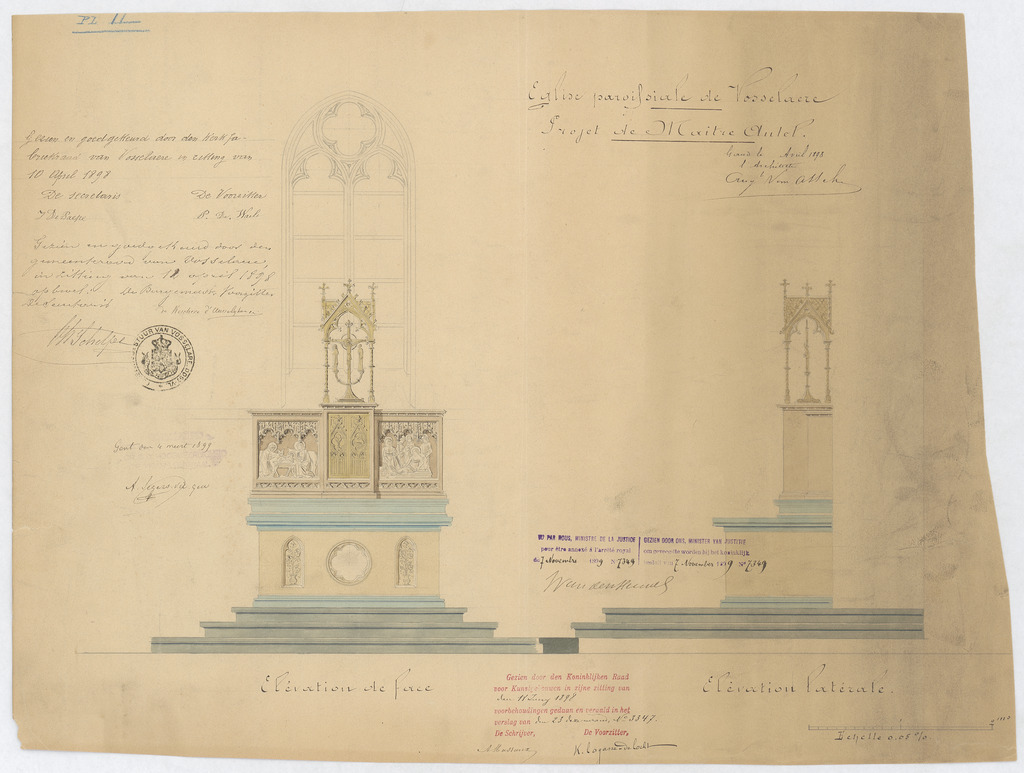 Pl II
Eglise paroissiale de Vosselaere
Projet de Maitre Autel.
Gand le Avril 1898
l'Architecte
Augt Van Assche
Gezien en goedgekeurd door den Kerkfa-
briekraad van Vosselaere in zitting van
10 April 1898
De secretaris De Voorzitter
Gezien en goedgekeurd door den
gemeenteraad van Vosselaere,
in zitting van 12 april 1898
De Burgemeester Voorzitter
BESTUUR VAN VOSSELARE
Gent den 4 meert 1899
VU PAR NOUS, MINISTRE DE LA JUSTICE
pour être annexé à l'arrêté royal
du 7 Novembre 1899 No 7349
GEZIEN DOOR ONS, MINISTER VAN JUSTITIE
om gevoegd te worden bij het koninklijk
besluit van 7 November 1899 No 7349
Elévation de face
Elévation latérale.
Gezien door den Koninklijken Raad
voor Kunstgebouwen in zijne zitting van
den 11 Juny 1898
voorbehoudingen gedaan en vermeld in het
verslag van den No 3347.
De Schrijver, De Voorzitter,
Echelle 0.05 %